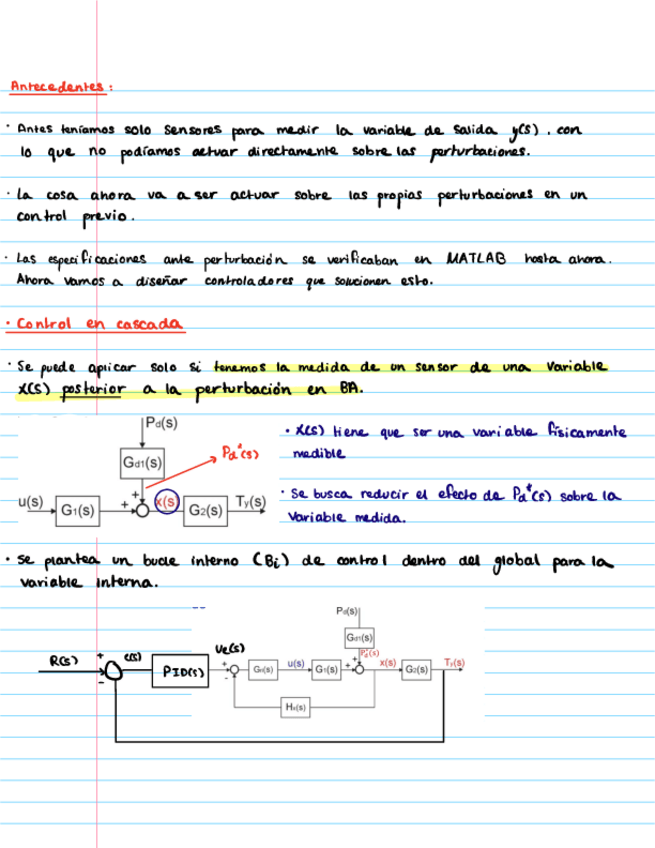 Antecedentes:
· Antes teníamos solo sensores para medir la variable de salida y(s), con
lo que no podíamos actuar directamente sobre las perturbaciones.
· La cosa ahora va a ser actuar sobre las propias perturbaciones en un
control previo.
· Las especificaciones ante perturbación se verificaban en MATLAB hasta ahora.
Ahora vamos a diseñar controladores que solucionen esto.
· Control en cascada
· Se puede aplicar solo si tenemos la medida de un sensor de una variable
X(s) posterior a la perturbación en BA.
Pd(s)
Gd1(s)
Pd*(s)
u(s)
G1(s)
+
+
x(s)
G2(s)
Ty(s)
· X(s) tiene que ser una variable físicamente
medible
· Se busca reducir el efecto de Pd*(s) sobre la
variable medida.
· Se plantea un bucle interno (Bi) de control dentro del global para la
variable interna.
Pd(s)
Gd1(s)
Pd*(s)
R(s)
+
-
e(s)
PID(s)
Ue(s)
+
-
u(s)
G1(s)
+
+
x(s)
G2(s)
Ty(s)